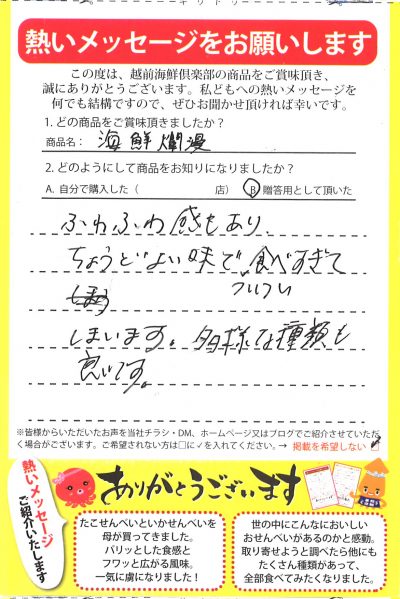 キリトリ
熱いメッセージをお願いします
この度は、越前海鮮倶楽部の商品をご賞味頂き、
誠にありがとうございます。私どもへの熱いメッセージを
何でも結構ですので、ぜひお聞かせ頂ければ幸いです。
1. どの商品をご賞味頂きましたか?
商品名: 海鮮爛漫
2. どのようにして商品をお知りになりましたか?
A. 自分で購入した( 店) B 贈答用として頂いた
ふわふわ感もあり、
ちょうどよい味で食べすぎて
ついつい
しまいます。多様な種類も
良いです。
※皆様からいただいたお声を当社チラシ・DM、ホームページ又はブログでご紹介させていただ
く場合がございます。ご希望されない方は□に✓を入れてください。→ 掲載を希望しない
熱いメッセージ
ご紹介いたします
ありがとうございます
たこせんべいといかせんべいを
母が買ってきました。
パリッとした食感と
フワッと広がる風味。
一気に虜になりました!
世の中にこんなにおいしい
おせんべいがあるのかと感動。
取り寄せようと調べたら他にも
たくさん種類があって、
全部食べてみたくなりました。